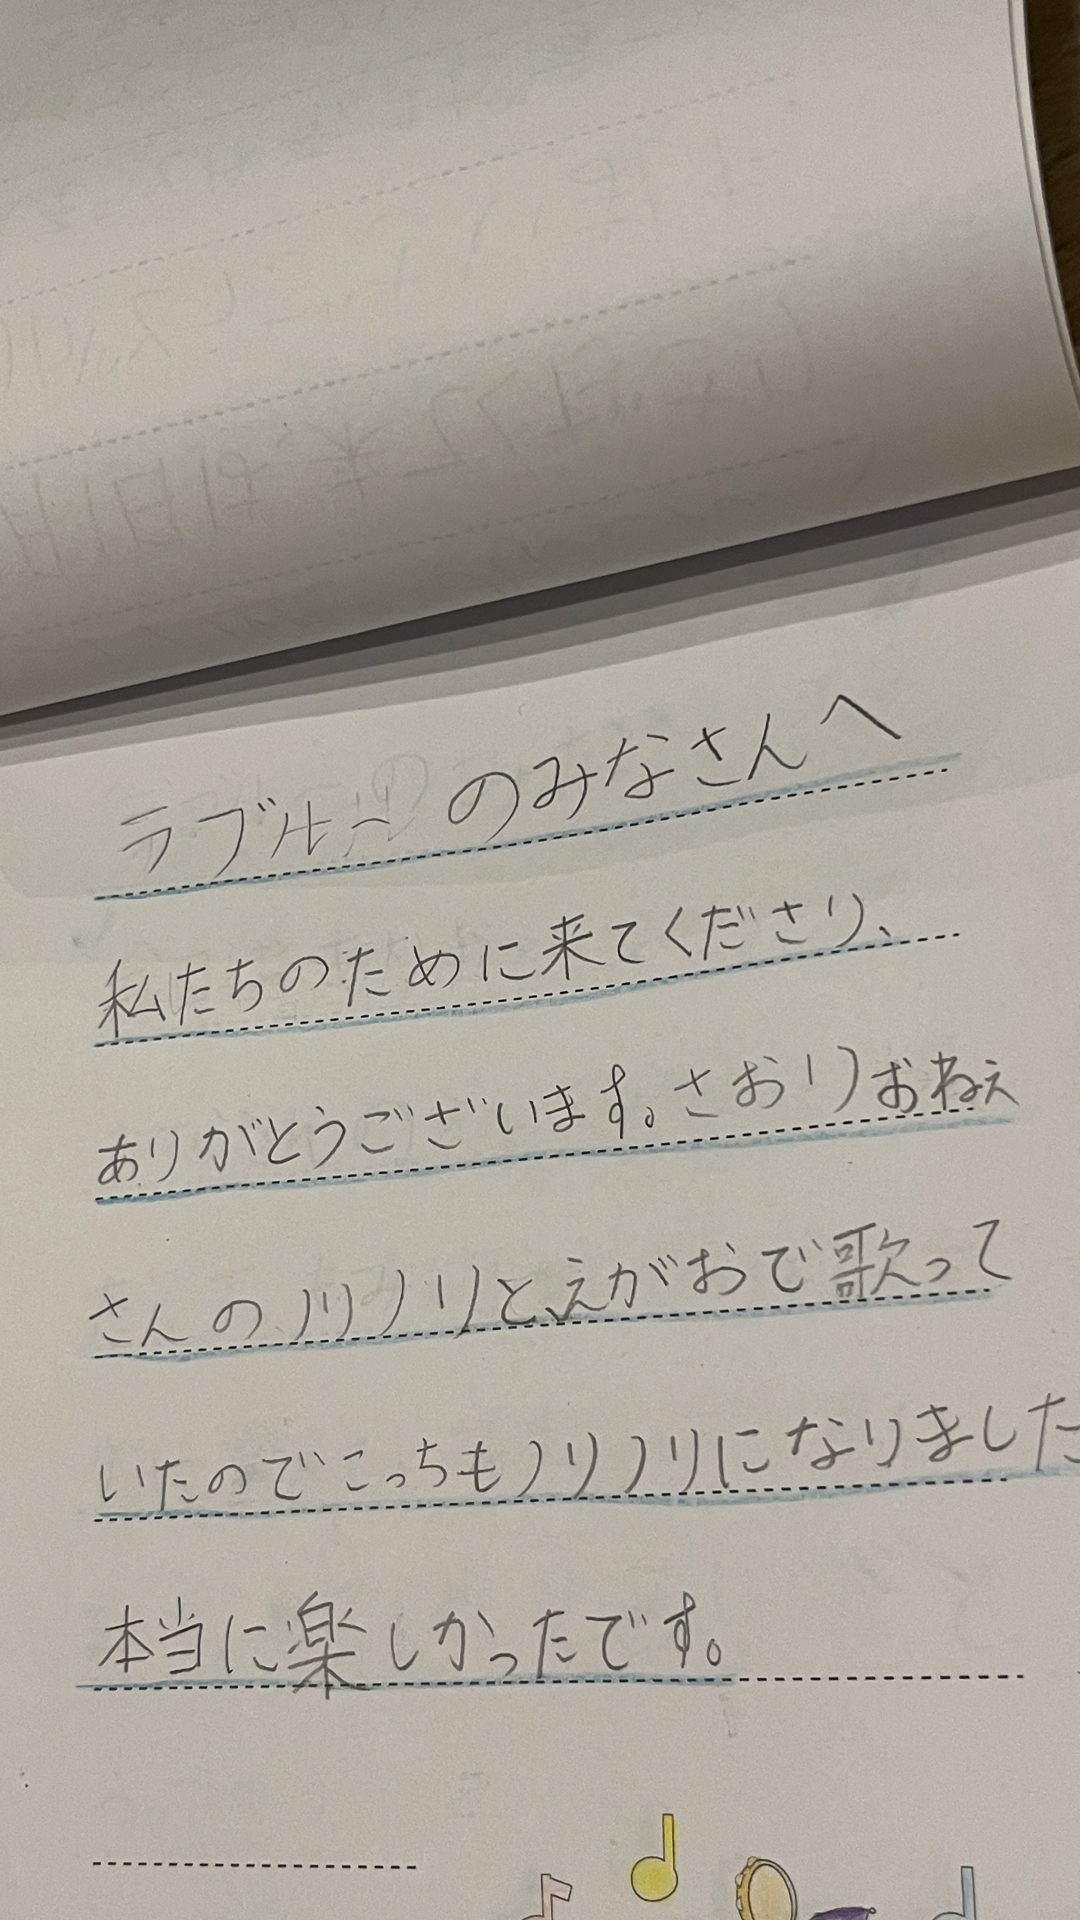 ラブルールのみなさんへ
私たちのために来てくださり、
ありがとうございます。さおりおねぇ
さんのノリノリと、えがおで歌って
いたのでこっちもノリノリになりました
本当に楽しかったです。